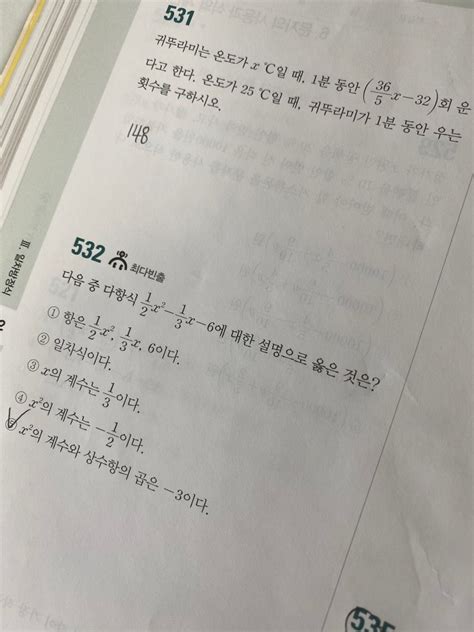 531
귀뚜라미는 온도가 x ℃일 때, 1분 동안 (36/5 x-32)회 운
다고 한다. 온도가 25 ℃일 때, 귀뚜라미가 1분 동안 우는
횟수를 구하시오.
148
Ⅲ. 일차방정식
532 최다빈출
다음 중 다항식 1/2 x²-1/3 x-6에 대한 설명으로 옳은 것은?
① 항은 1/2 x², 1/3 x, 6이다.
② 일차식이다.
③ x의 계수는 1/3이다.
④ x²의 계수는 -1/2이다.
⑤ x²의 계수와 상수항의 곱은 -3이다.
535